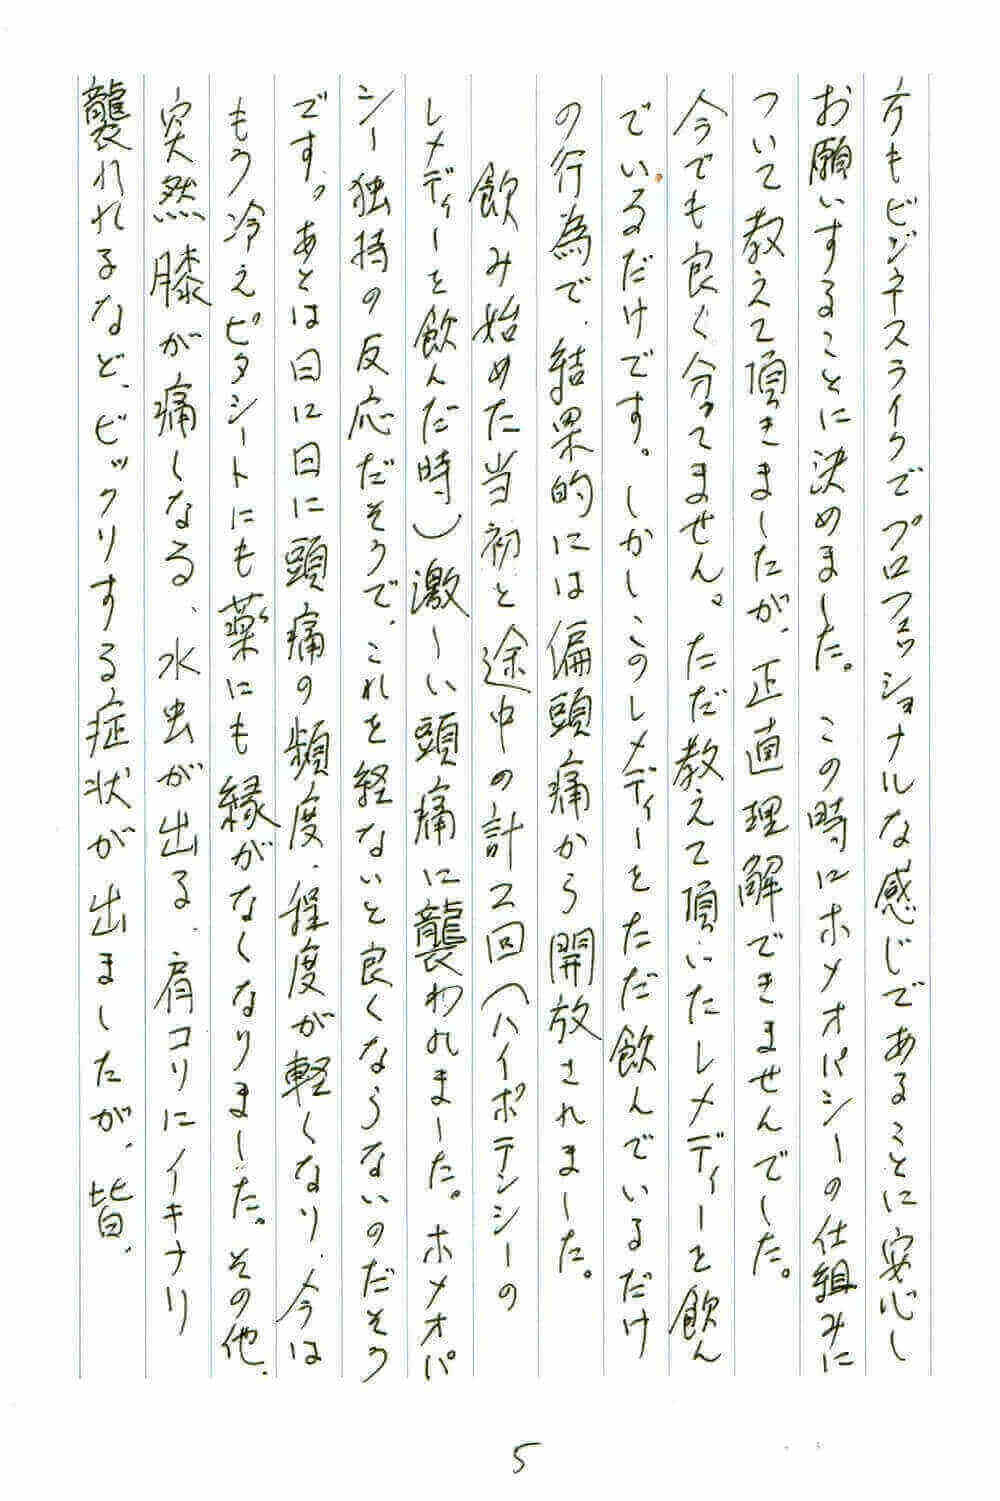 方もビジネスライクでプロフェッショナルな感じであることに安心し
お願いすることに決めました。この時にホメオパシーの仕組みに
ついて教えて頂きましたが、正直理解できませんでした。
今でも良く分ってません。ただ教えて頂いたレメディーを飲ん
でいるだけです。しかしこのレメディーをただ飲んでいるだけ
の行為で、結果的には偏頭痛から開放されました。
飲み始めた当初と途中の計2回（ハイポテンシーの
レメディーを飲んだ時）激しい頭痛に襲われました。ホメオパ
シー独特の反応だそうで、これを経ないと良くならないのだそう
です。あとは日に日に頭痛の頻度、程度が軽くなり、今は
もう冷えピタシートにも薬にも縁がなくなりました。その他、
突然膝が痛くなる、水虫が出る、肩コリにイキナリ
襲われるなど、ビックリする症状が出ましたが、皆、
5